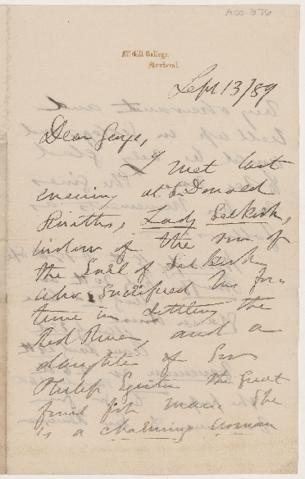 McGill College,
Montreal.
Sept 13/89
Dear George,
I met last
evening at Donald
Smiths, Lady Selkirk,
widow of the son of
the Earl of Selkirk
who sacrificed his for
tune in settling the
Red River, and a
daughter of Sir
Philip Egerton the great
fossil fish man. She
is a charming woman